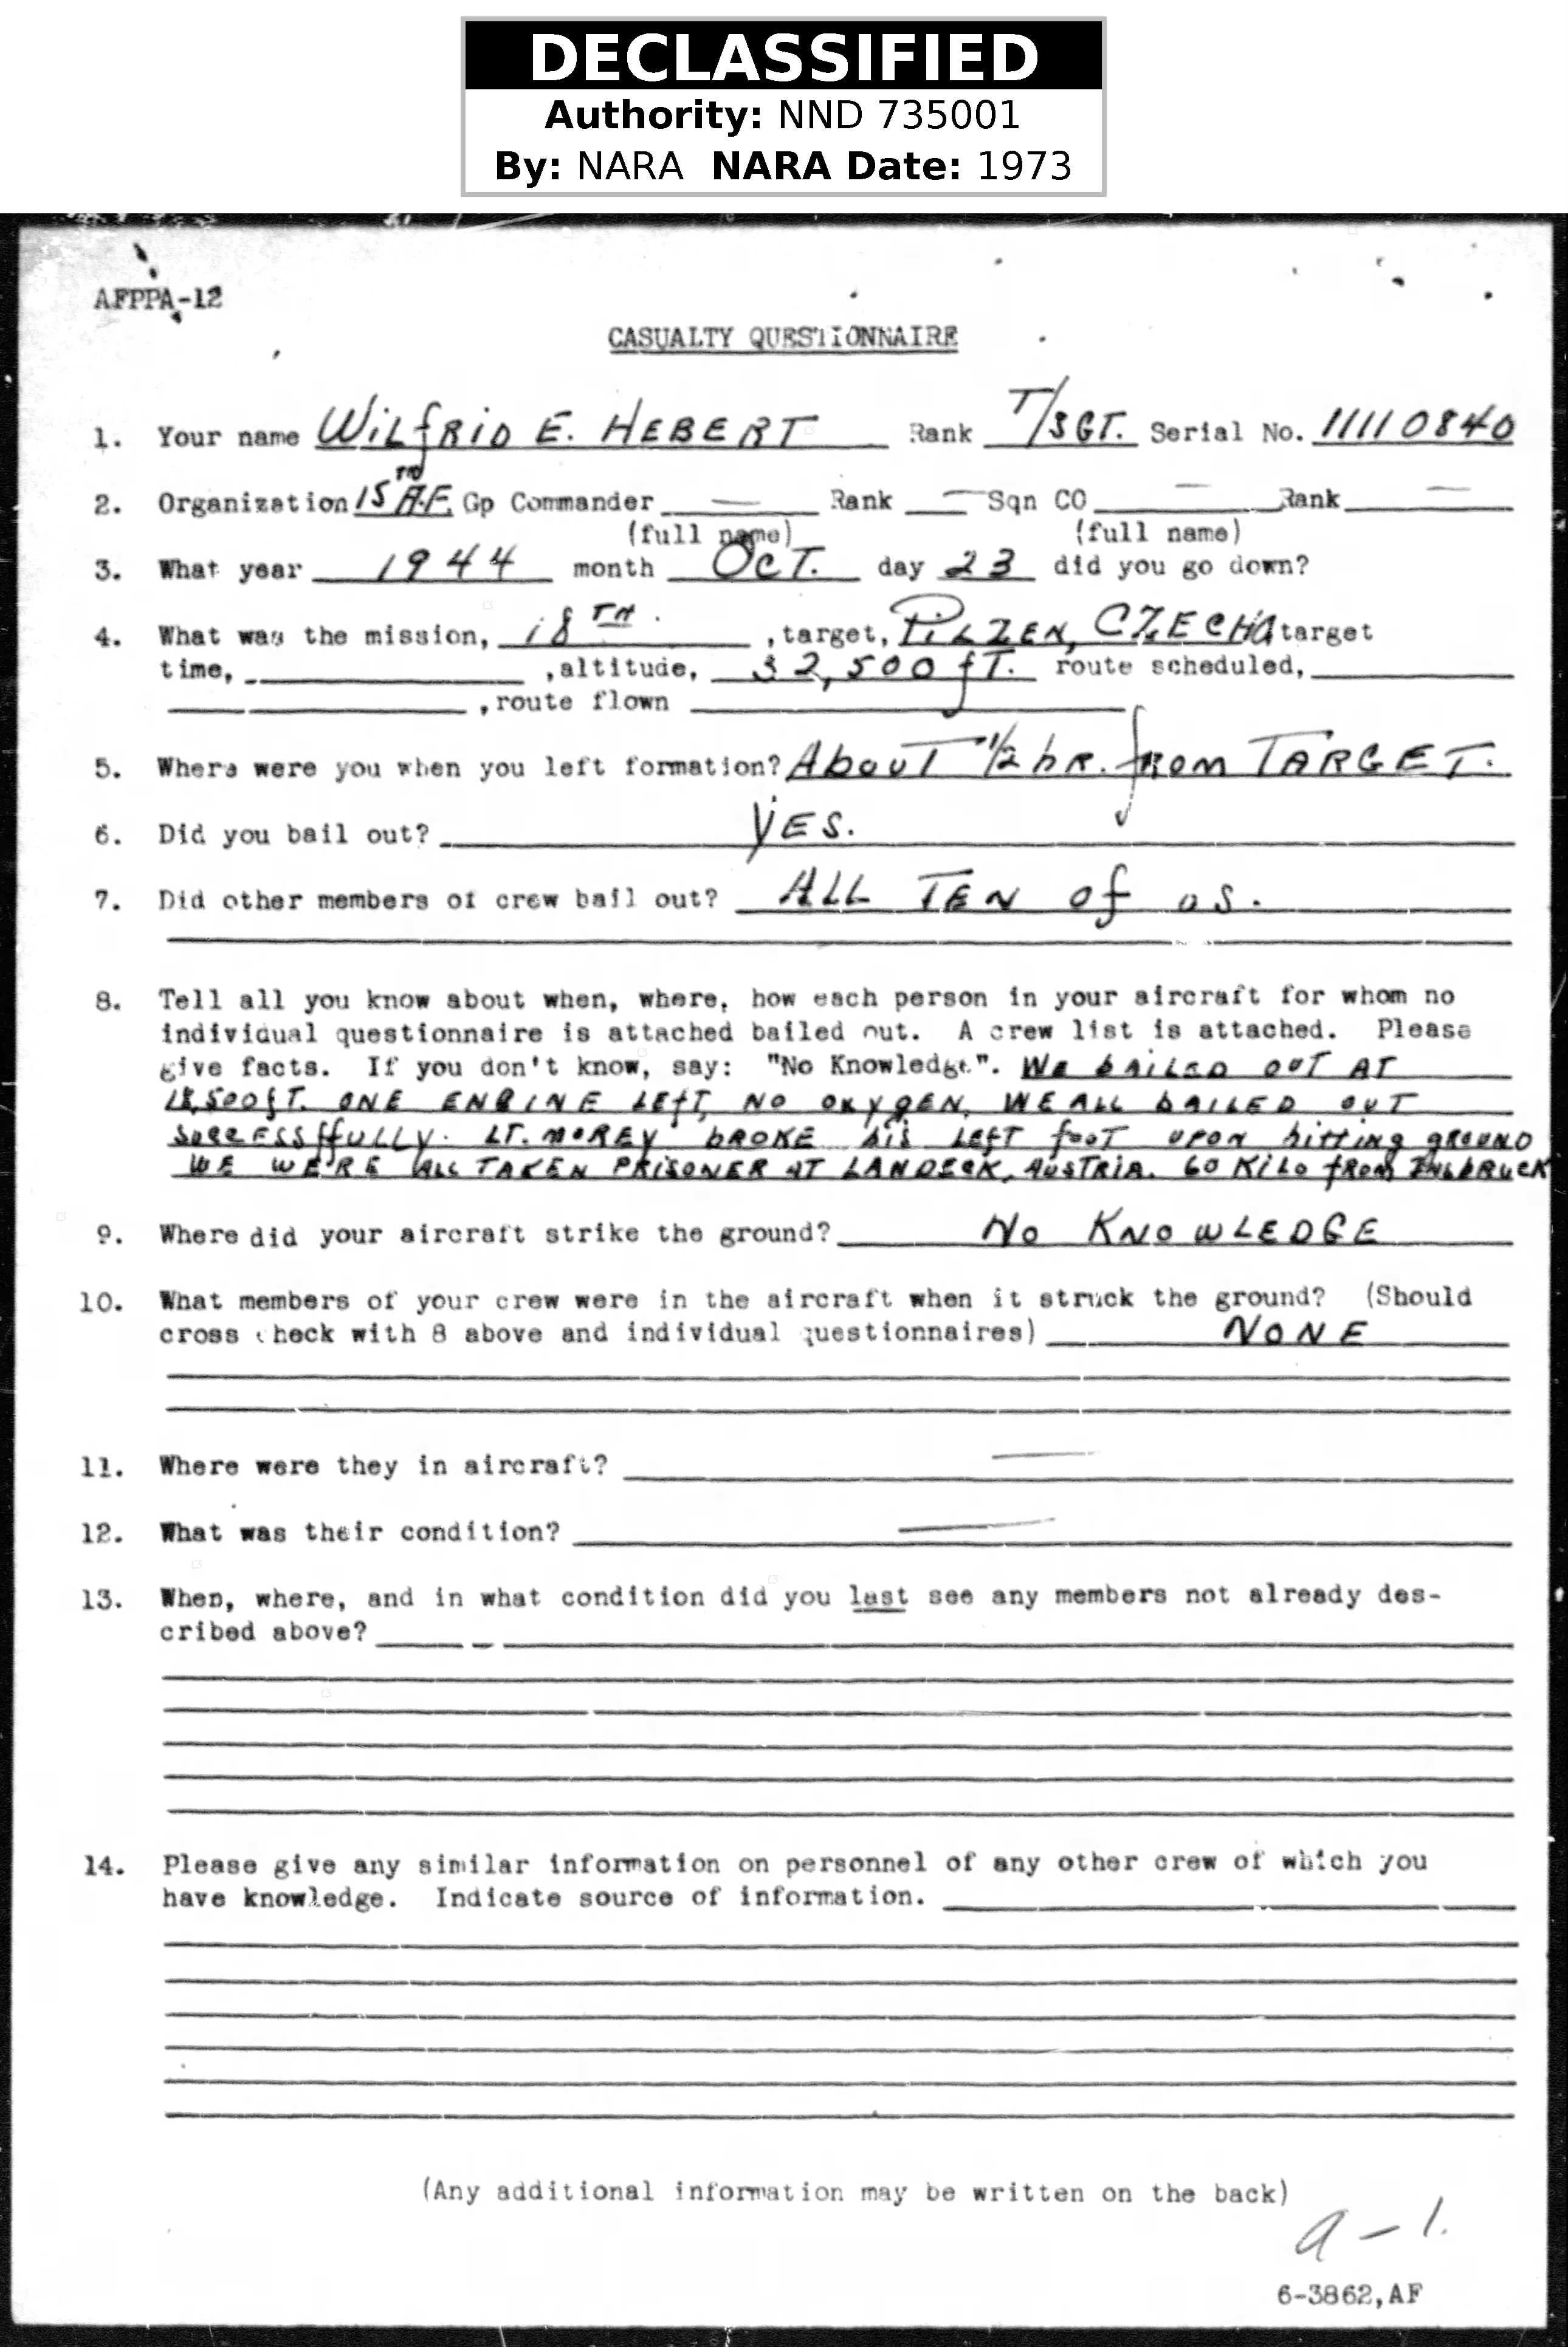 DECLASSIFIED
Authority: NND 735001
By: NARA NARA Date: 1973
AFPPA-12
CASUALTY QUESTIONNAIRE
1. Your name WilfRiD E. HEBERT Rank T/SGT. Serial No. 11110840
2. Organization 15TH A.F. Gp Commander — Rank — Sqn CO — Rank —
(full name) (full name)
3. What year 1944 month OcT. day 23 did you go down?
4. What was the mission, 18TH. , target, PiLZEN, CZECHA target
time, ,altitude, 32,500 fT. route scheduled,
,route flown
5. Where were you when you left formation? AbouT 1/2 hR. fRom TARGET.
6. Did you bail out? YES.
7. Did other members of crew bail out? ALL TEN of us.
8. Tell all you know about when, where, how each person in your aircraft for whom no
individual questionnaire is attached bailed out. A crew list is attached. Please
give facts. If you don't know, say: "No Knowledge". WE bAiLED OUT AT
18,500fT. ONE ENGINE LEfT, NO OXYGEN. WE ALL bAILED OUT
SUCCESSffULLY. LT. MOREY bROKE hiS LEFT fooT UPON hitting gROUND
WE WE'RE ALL TAKEN PRISONER AT LANDECK, AUSTRIA. 60 KiLo fRom INSbRUCK
9. Where did your aircraft strike the ground? No KNOWLEDGE
10. What members of your crew were in the aircraft when it struck the ground? (Should
cross check with 8 above and individual questionnaires) NONE
11. Where were they in aircraft? —
12. What was their condition? —
13. When, where, and in what condition did you last see any members not already des-
cribed above?
14. Please give any similar information on personnel of any other crew of which you
have knowledge. Indicate source of information.
(Any additional information may be written on the back)
a-1.
6-3862,AF